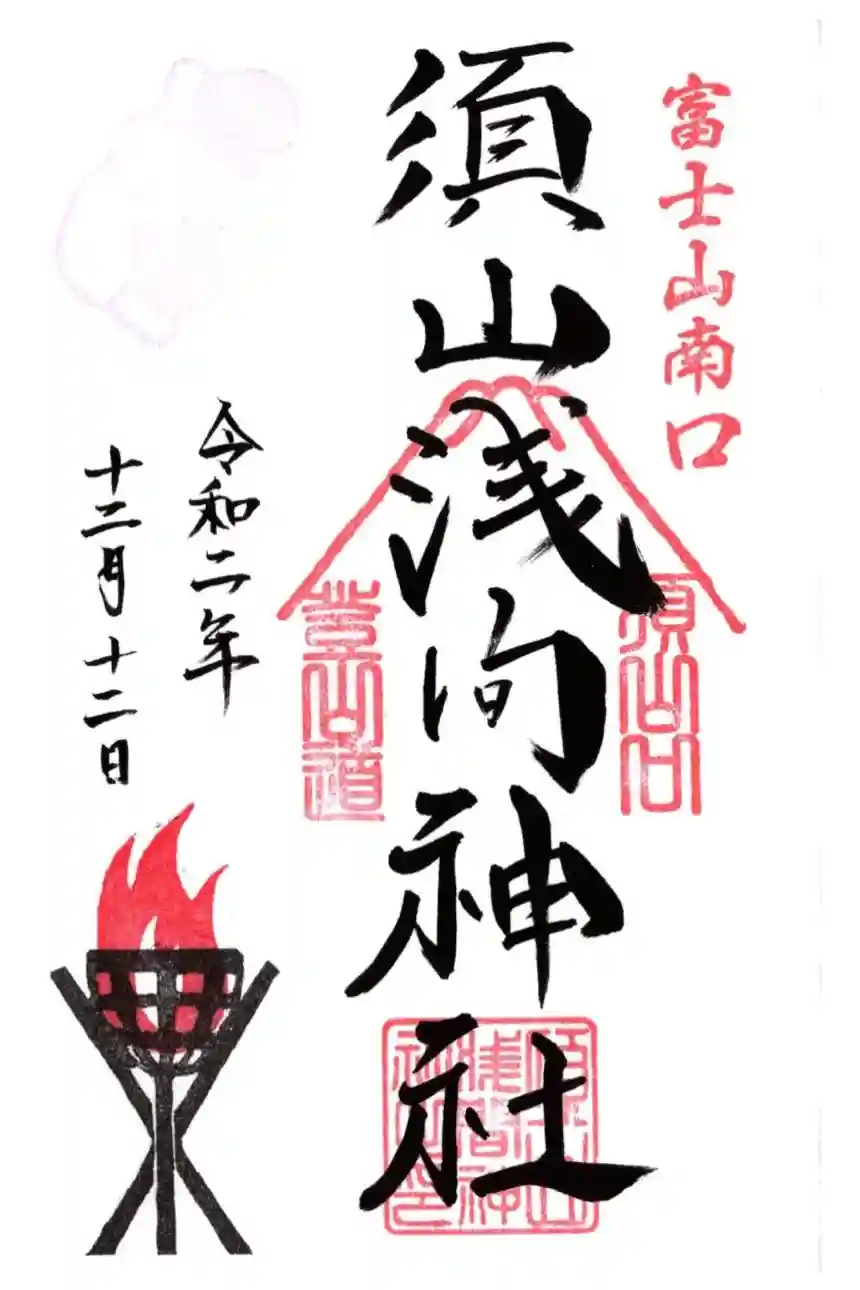 富士山南口
須山浅間神社
須山口
登山道
須山浅間神社印
令和二年
十二月十二日